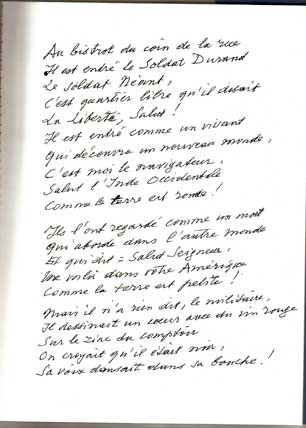 Au bistrot du coin de la rue
Il est entré le Soldat Durand
Le soldat Néant,
C'est quartier libre qu'il disait
La Liberté, Salut !
Il est entré comme un vivant
Qui découvre un nouveau monde,
C'est moi le navigateur,
Salut l'Inde Occidentale
Comme la terre est ronde !
Ils l'ont regardé comme un mort
Qui aborde dans l'autre monde
Et qui dit = Salut Seigneur,
Me voilà dans votre Amérique
Comme la terre est petite !
Mais il n'a rien dit, le militaire,
Il dessinait un cœur avec du vin rouge
Sur le zinc du comptoir
On croyait qu'il était noir,
Sa voix dansait dans sa bouche !